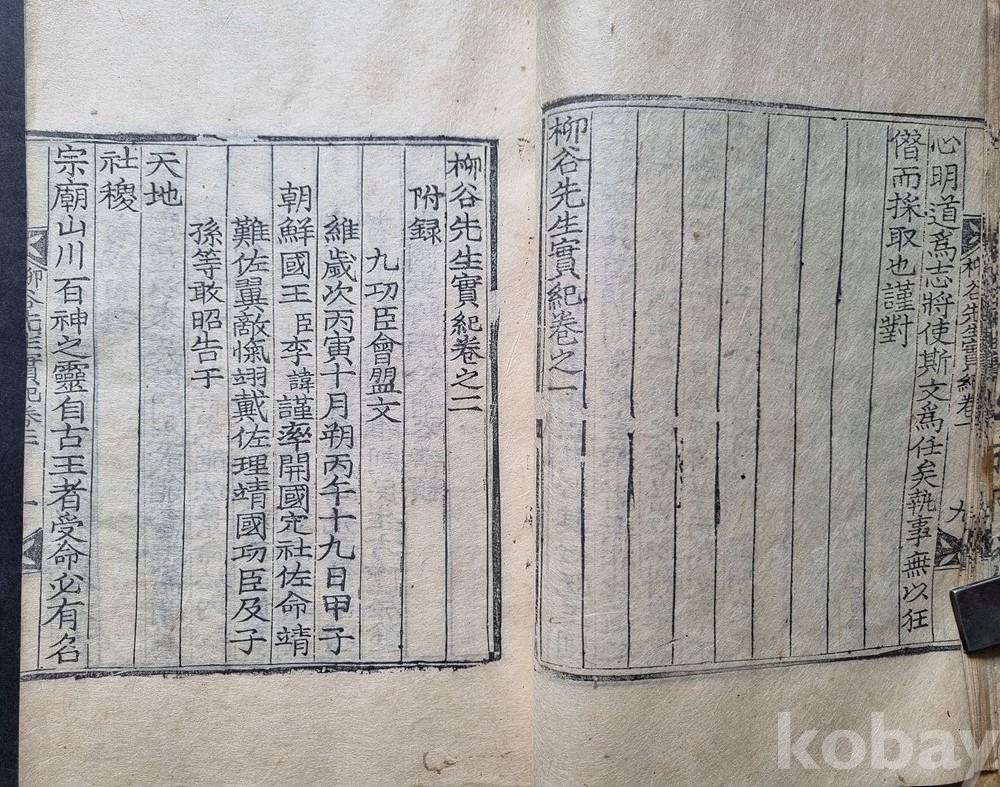 心明道爲志將使斯文爲任矣執事無以狂
僭而採取也謹對
柳谷先生實紀卷之一
柳谷先生實紀卷一
九
柳谷先生實紀卷之二
附録
九功臣會盟文
維歲次丙寅十月朔丙午十九日甲子
朝鮮國王臣李諱謹率開國定社佐命靖
難佐翼敵愾翊戴佐理靖國功臣及子
孫等敢昭告于
天地
社稷
宗廟山川百神之靈自古王者受命必有名
柳谷先生實紀卷二
一
kobay